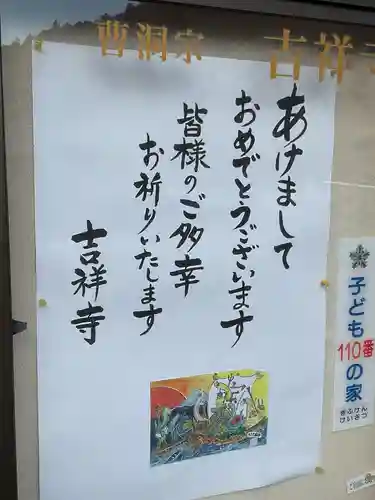 曹洞宗 吉祥寺
あけまして
おめでとうございます
皆様のご多幸
お祈りいたします
吉祥寺
子ども
110番
の家
ぎふけん
けいさつ